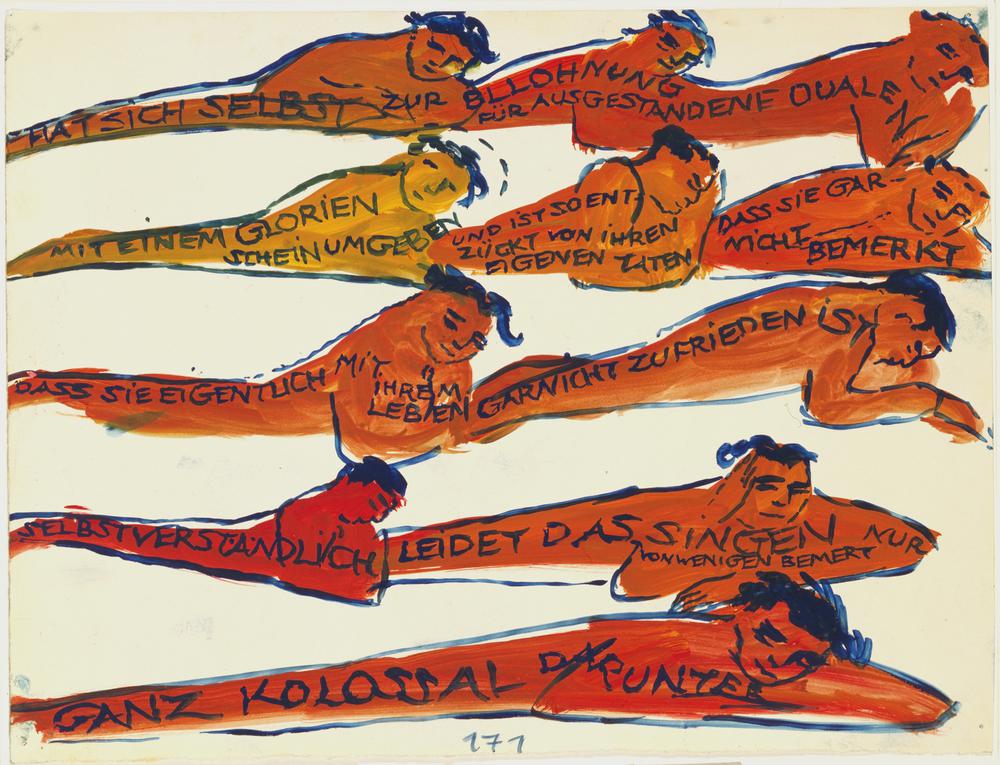 HAT SICH SELBST ZUR BLLOHNUNG
FÜR AUSGESTANDENE QUALEN
MIT EINEM GLORIEN
SCHEIN UMGEBEN
UND IST SO ENT-
ZÜCKT VON IHREN
EIGENEN TATEN
DASS SIE GAR-
NICHT
BEMERKT
DASS SIE EIGENTLICH MIT
IHREM
LEBEN GARNICHT ZUFRIEDEN IST
SELBSTVERSTÄNDLICH
LEIDET DAS SINGEN NUR
VON WENIGEN BEMERT
GANZ KOLOSSAL DARUNTER
171